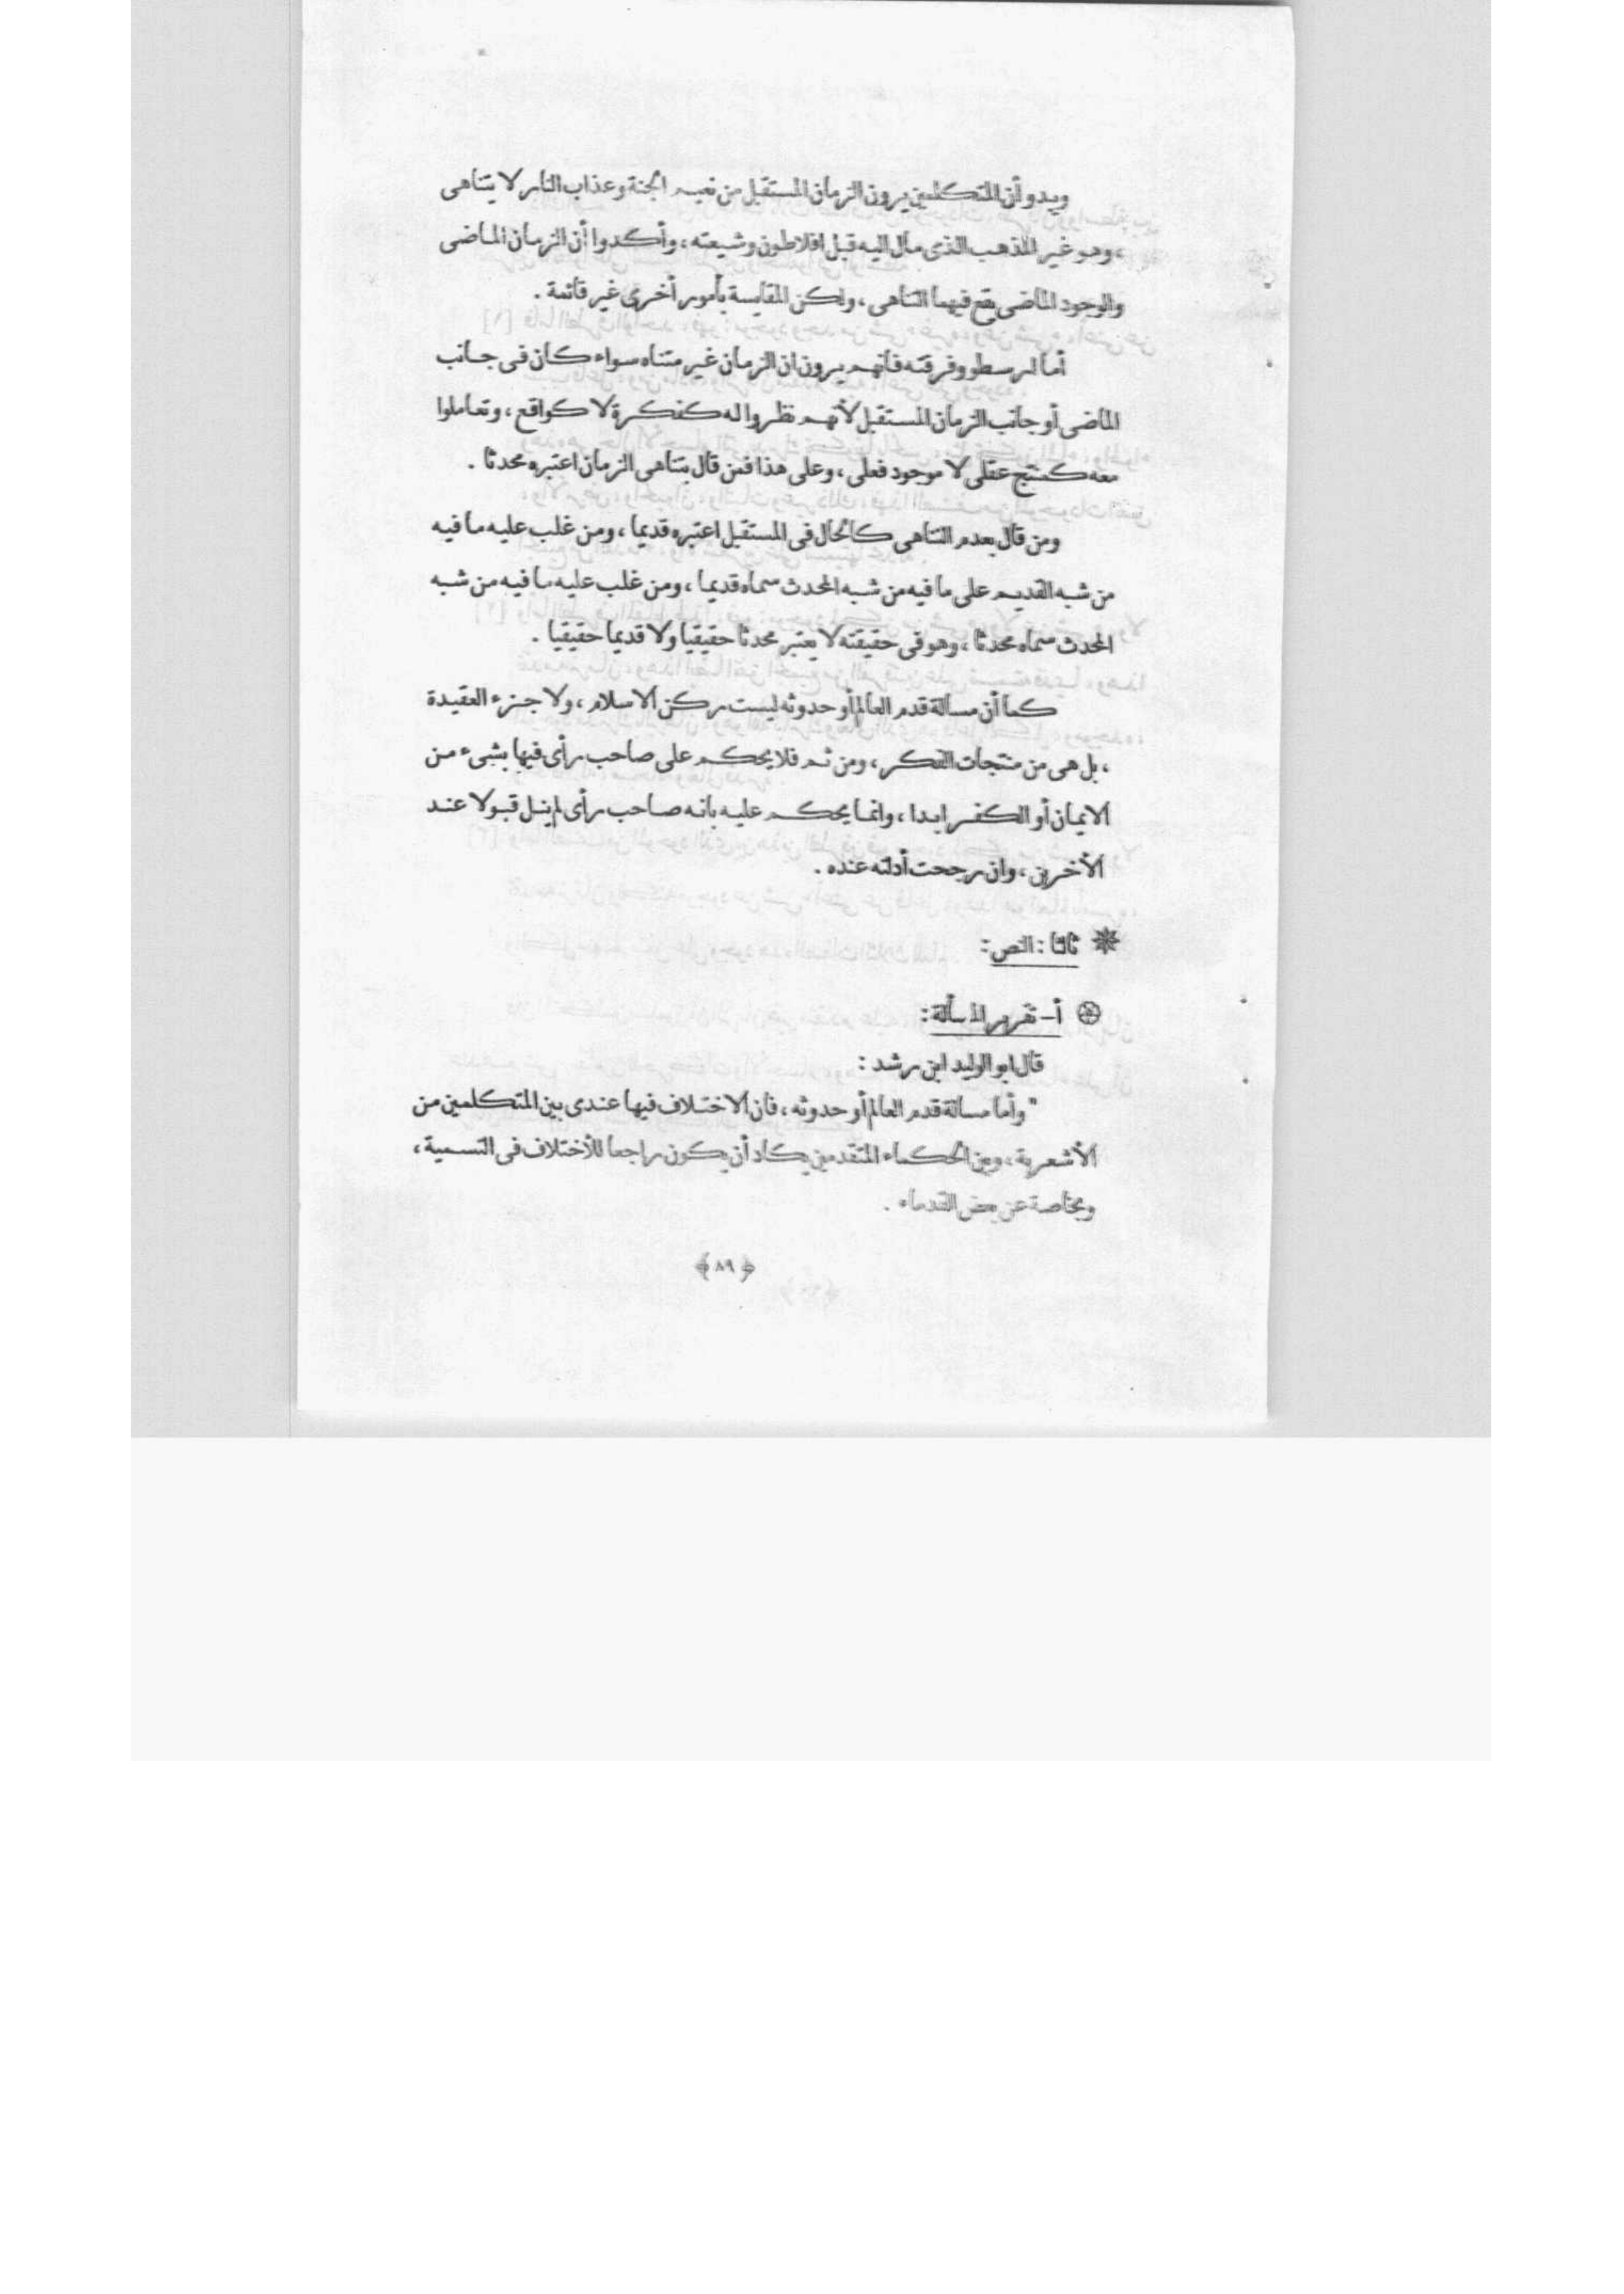 ويبدو أن المتكلمين يرون الزمان المستقبل من نعيم الجنة وعذاب النار لا يتناهى
، وهو غير المذهب الذى مال اليه قبل افلاطون وشيعته ، وأكدوا أن الزمان الماضى
والوجود الماضى يقع فيهما التناهى ، ولكن المقايسة بأمور أخرى غير قائمة .
أما ارسطو وفرقته فأنهم يرون ان الزمان غير متناه سواء كان فى جانب
الماضى أو جانب الزمان المستقبل لأنهم نظروا له كفكرة لا كواقع ، وتعاملوا
معه كمنتج عقلى لا موجود فعلى ، وعلى هذا فمن قال بتناهى الزمان اعتبره محدثا .
ومن قال بعدم التناهى كالحال فى المستقبل اعتبره قديما ، ومن غلب عليه ما فيه
من شبه القديم على ما فيه من شبه المحدث سماه قديما ، ومن غلب عليه ما فيه من شبه
المحدث سماه محدثا ، وهو فى حقيقته لا يعتبر محدثا حقيقيا ولا قديما حقيقيا .
كما أن مسألة قدم العالم أو حدوثه ليست ركن الاسلام ، ولا جزء العقيدة
، بل هى من منتجات الفكر ، ومن ثم فلا يحكم على صاحب رأى فيها بشىء من
الايمان أو الكفر ابدا ، وانما يحكم عليه بانه صاحب رأى لم ينل قبولا عند
الأخرين ، وان رجحت أدلته عنده .
ثالثا : النص :
أ - تقرير المسألة :
قال ابو الوليد ابن رشد :
" وأما مسالة قدم العالم أو حدوثه ، فان الاختلاف فيها عندى بين المتكلمين من
الأشعرية ، وبين الحكماء المتقدمين يكاد أن يكون راجعا للأختلاف فى التسمية ،
وبخاصة عن بعض القدماء .
﴿ ٨٩ ﴾